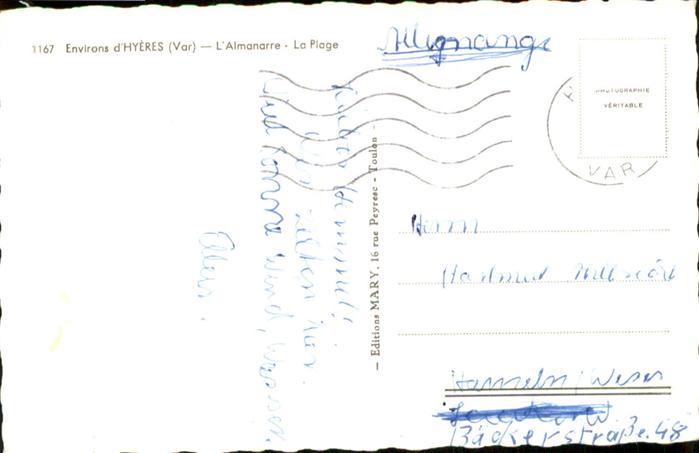 1167 Environs d'HYÈRES (Var) — L'Almanarre - La Plage
Allemagne
PHOTOGRAPHIE
VÉRITABLE
VAR
— Editions MARY, 16 rue Peyresc - Toulon -
Wir zelten hier.
Viel Sonne Wind, Wasser.
Herrn
Hartmut
Hameln/Weser
Bäckerstraße 48